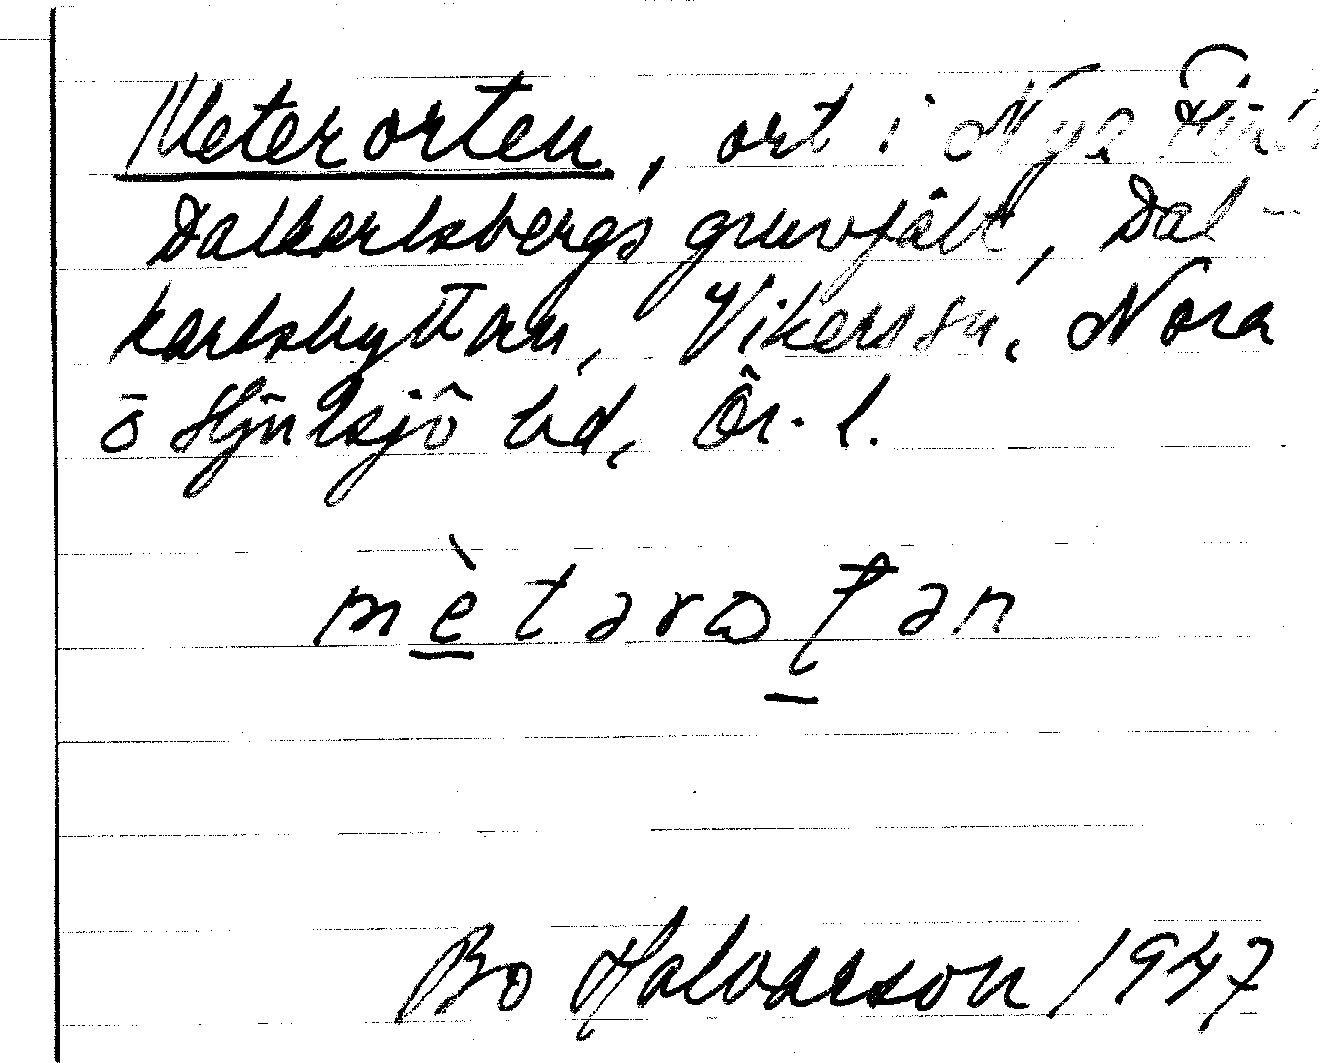 Meterorten, ort i Nya
Dalkarlsbergs gruvfält, Dal-
karlshyttan, Vikers sn, Nora
o Hjulsjö bd, Ör. l.
mètərɷʈən
Bo Halvarson 1947